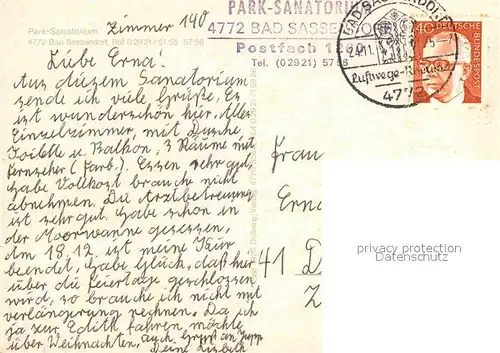 Zimmer 140
Park-Sanatorium
4772 Bad Sassendorf, Ruf 0 29 21 / 57 55 57 56
PARK-SANATORIUM
4772 BAD SASSENDORF
Postfach 12
Tel. (0 29 21) 57 56
Luftwege-Rheuma
4772
40
DEUTSCHE BUNDESPOST
Liebe Erna.
Aus diesem Sanatorium
sende ich viele Grüße. Es
ist wunderschön hier. Alles
Einzelzimmer, mit Dusche
Toilette u. Balkon, 3 Räume mit
Fernseher (Farb). Essen sehr gut,
habe Vollkost brauche nicht
abnehmen. Die Arztbetreuung
ist sehr gut. Habe schon in
der Moorwanne gesessen.
Am 18.12. ist meine Kur
beendet, habe Glück, daß hier
über die Feiertage geschlossen
wird, so brauche ich nicht mit
verlängerung rechnen. Da ich
ja zur Edith fahren möchte
über Weihnachten. Auch Gruß an
Deine Lisbeth
Frau
Erna
41 D
Z
privacy protection
Datenschutz